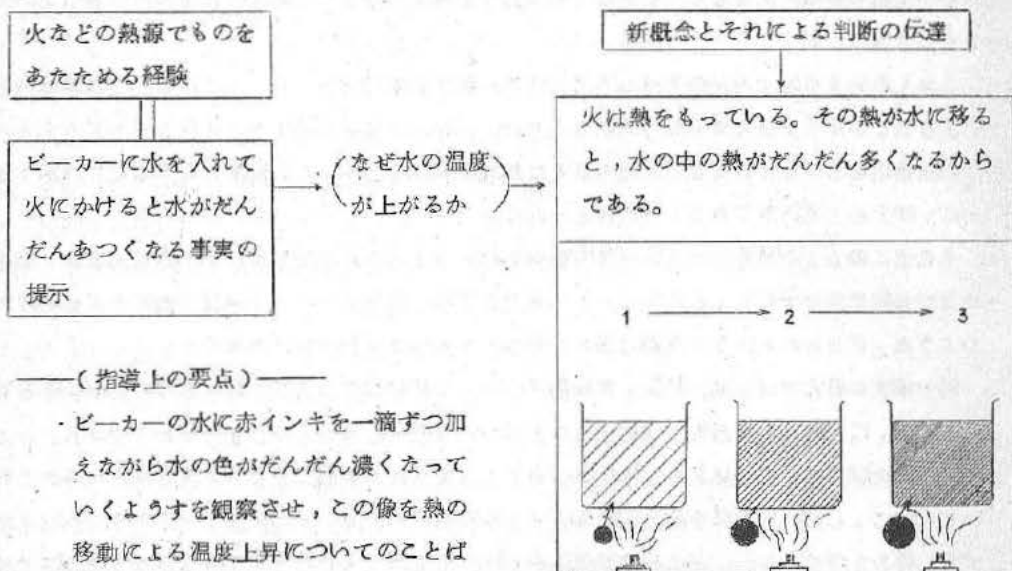 火などの熱源でものを
あたためる経験
ビーカーに水を入れて
火にかけると水がだん
だんあつくなる事実の
提示
(なぜ水の温度
が上がるか)
新概念とそれによる判断の伝達
火は熱をもっている。その熱が水に移る
と、水の中の熱がだんだん多くなるから
である。
1 2 3
(指導上の要点)
・ビーカーの水に赤インキを一滴ずつ加
えながら水の色がだんだん濃くなって
いくようすを観察させ,この像を熱の
移動による温度上昇についてのことば